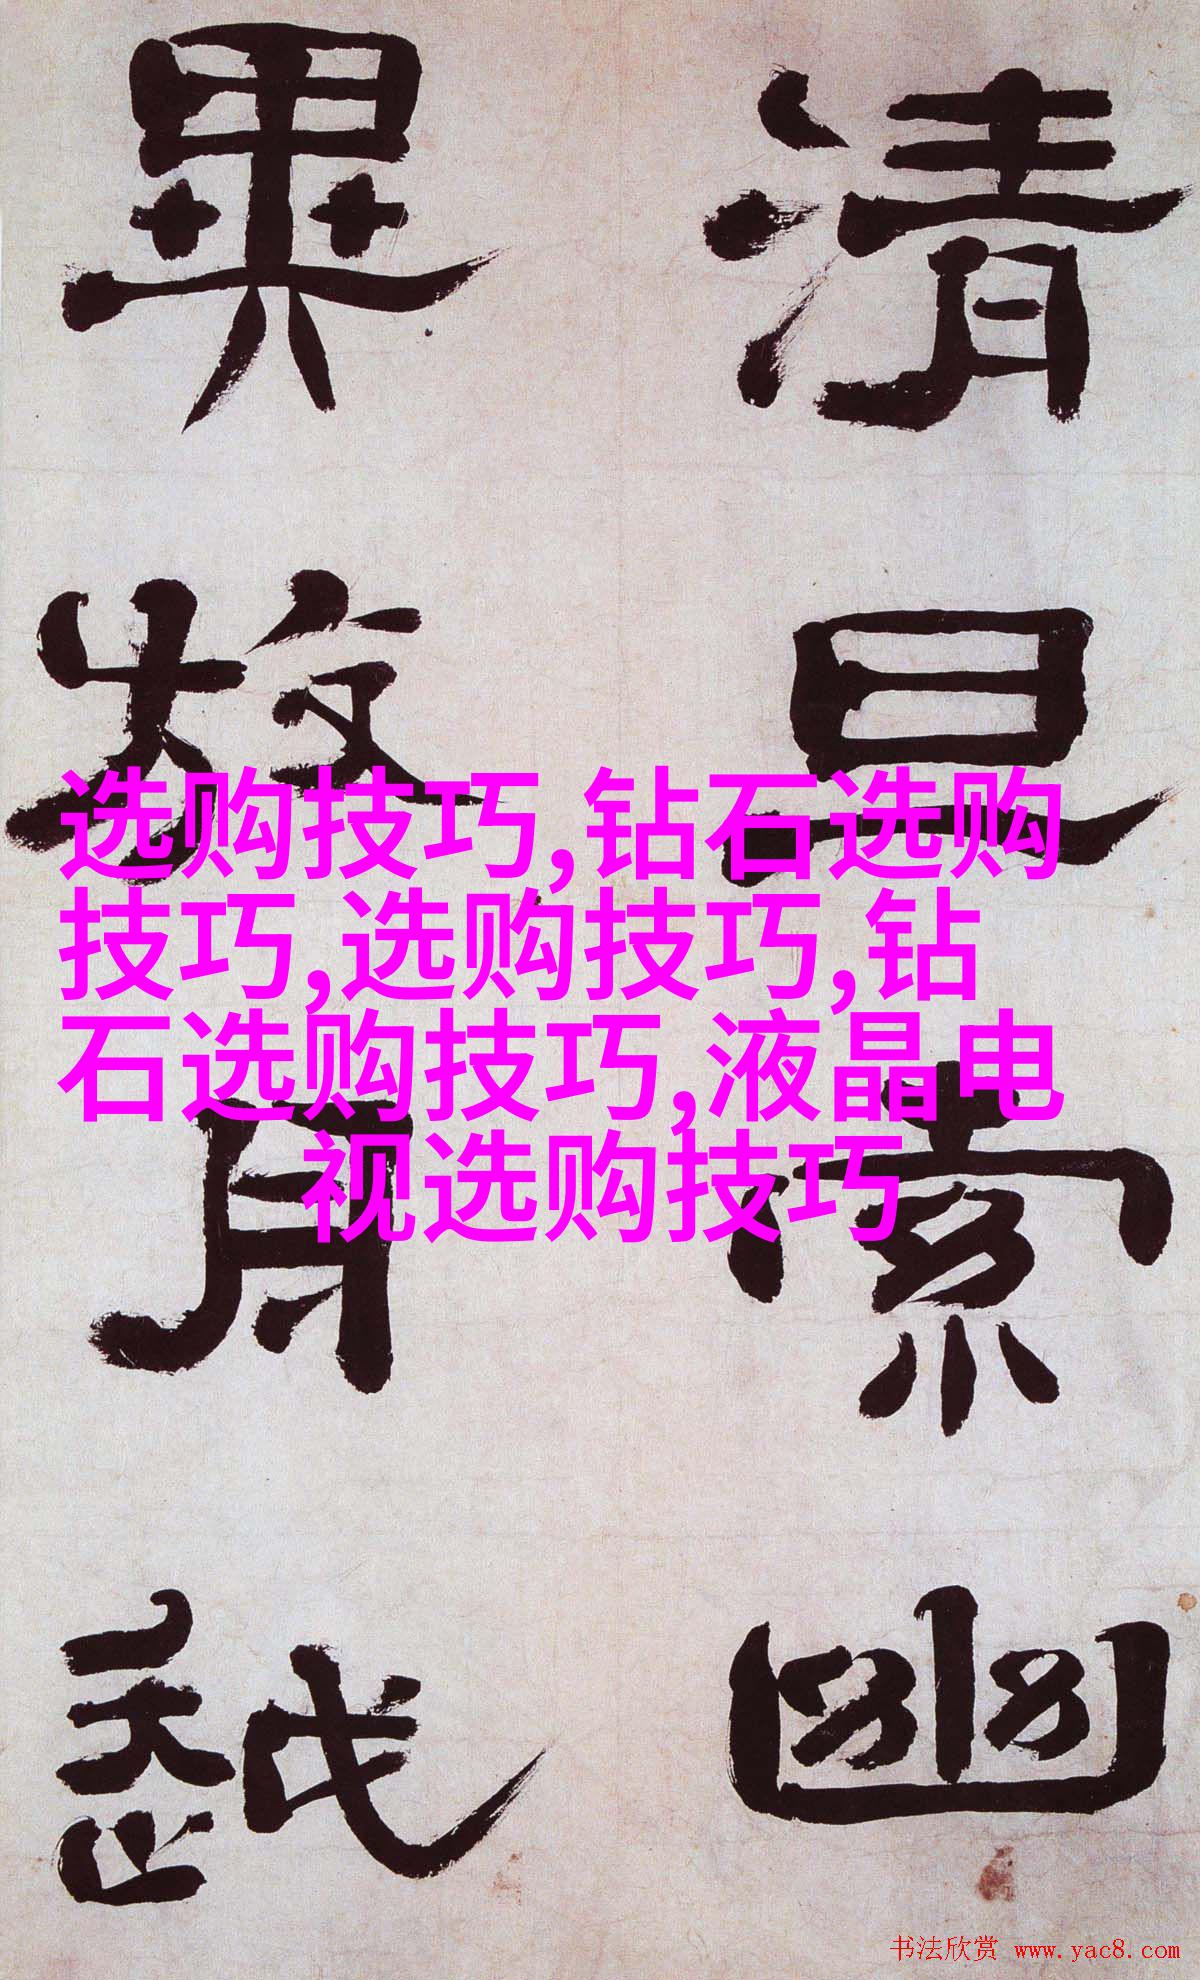 清旦索幽
異放舟越
选购技巧,钻石选购
技巧,选购技巧,钻
石选购技巧,液晶电
视选购技巧
书法欣赏 www.yac8.com